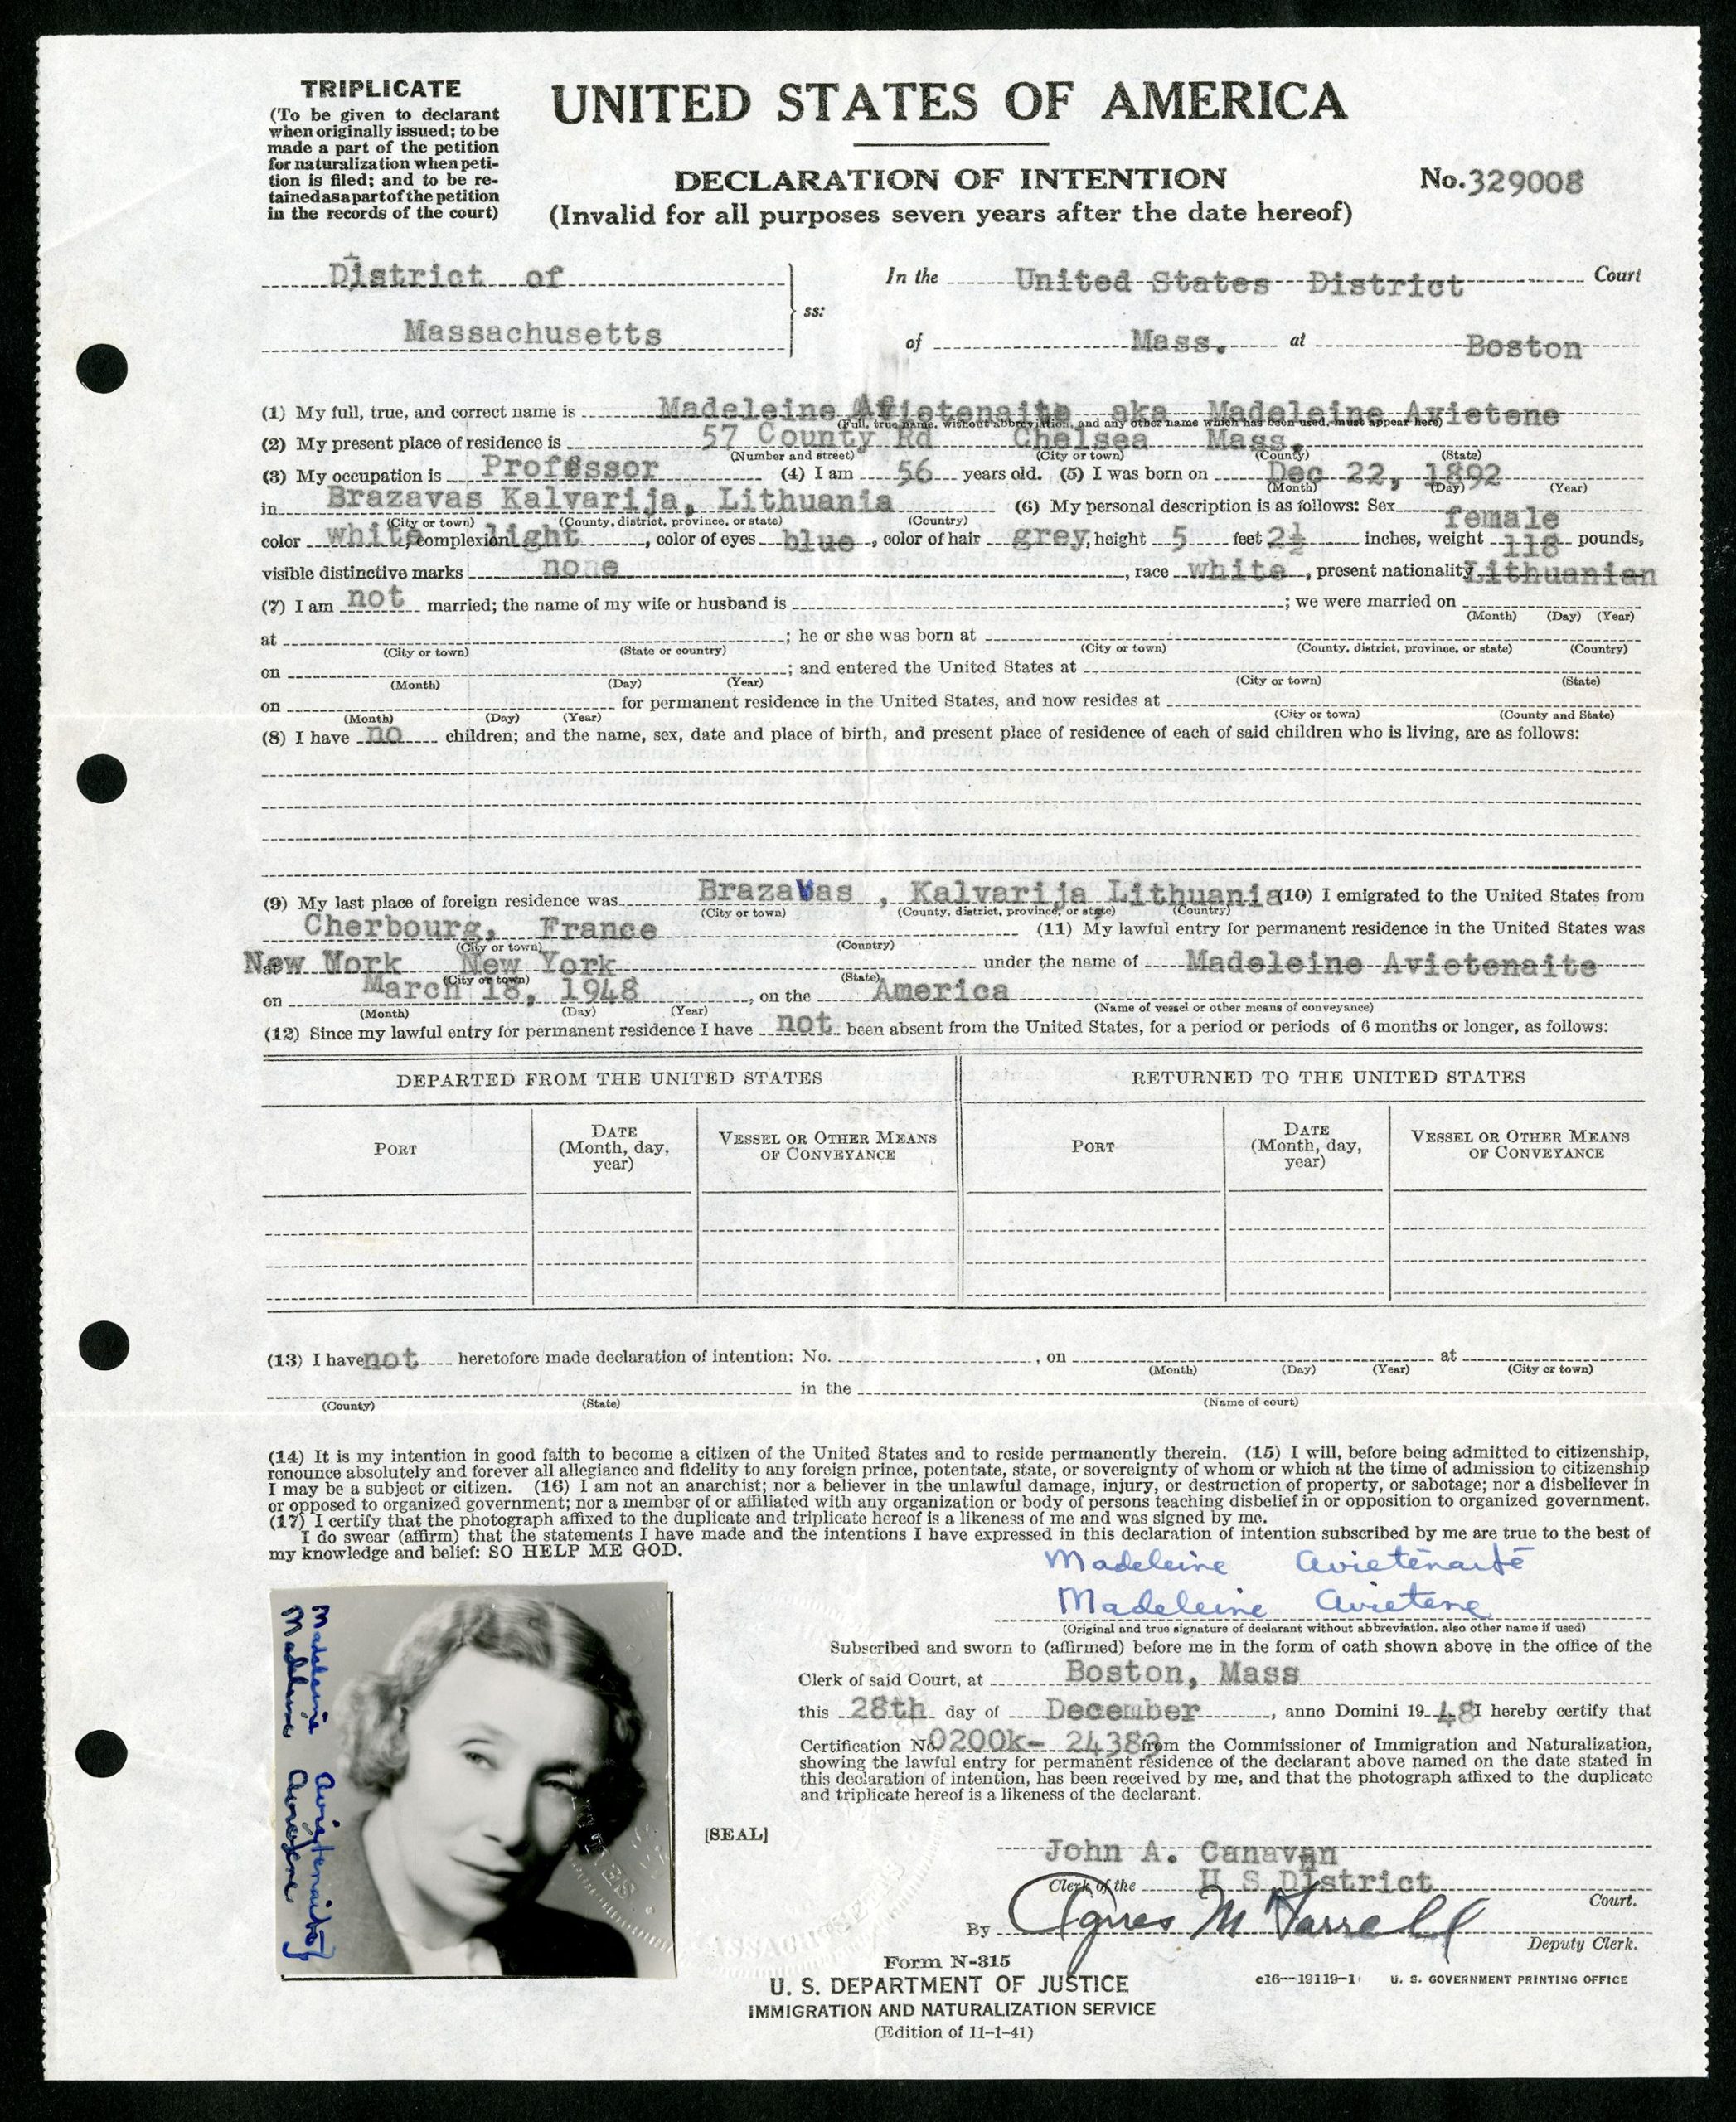 TRIPLICATE
(To be given to declarant
when originally issued; to be
made a part of the petition
for naturalization when peti-
tion is filed; and to be re-
tained as a part of the petition
in the records of the court)
UNITED STATES OF AMERICA
DECLARATION OF INTENTION
(Invalid for all purposes seven years after the date hereof)
No. 329008
District of
Massachusetts
ss:
In the United States District Court
of Mass. at Boston
(1) My full, true, and correct name is Madeleine Avietenaite aka Madeleine Avietene
(Full, true name, without abbreviation, and any other name which has been used, must appear here)
(2) My present place of residence is 57 County Rd Chelsea Mass.
(Number and street) (City or town) (County) (State)
(3) My occupation is Professor (4) I am 56 years old. (5) I was born on Dec 22, 1892
(Month) (Day) (Year)
in Brazavas Kalvarija, Lithuania (6) My personal description is as follows: Sex female
(City or town) (County, district, province, or state) (Country)
color white, complexion light, color of eyes blue, color of hair grey, height 5 feet 2½ inches, weight 118 pounds,
visible distinctive marks none, race white, present nationality Lithuanian
(7) I am not married; the name of my wife or husband is ; we were married on
(Month) (Day) (Year)
at ; he or she was born at
(City or town) (State or country) (City or town) (County, district, province, or state) (Country)
on ; and entered the United States at
(Month) (Day) (Year) (City or town) (State)
on for permanent residence in the United States, and now resides at
(Month) (Day) (Year) (City or town) (County and State)
(8) I have no children; and the name, sex, date and place of birth, and present place of residence of each of said children who is living, are as follows:
(9) My last place of foreign residence was Brazavas, Kalvarija Lithuania (10) I emigrated to the United States from
(City or town) (County, district, province, or state) (Country)
Cherbourg, France (11) My lawful entry for permanent residence in the United States was
(City or town) (Country)
at New York New York under the name of Madeleine Avietenaite
(City or town) (State)
on March 18, 1948, on the America
(Month) (Day) (Year) (Name of vessel or other means of conveyance)
(12) Since my lawful entry for permanent residence I have not been absent from the United States, for a period or periods of 6 months or longer, as follows:
DEPARTED FROM THE UNITED STATES RETURNED TO THE UNITED STATES
PORT DATE (Month, day, year) VESSEL OR OTHER MEANS OF CONVEYANCE PORT DATE (Month, day, year) VESSEL OR OTHER MEANS OF CONVEYANCE
(13) I have not heretofore made declaration of intention: No. , on at
(Month) (Day) (Year) (City or town)
in the
(County) (State) (Name of court)
(14) It is my intention in good faith to become a citizen of the United States and to reside permanently therein. (15) I will, before being admitted to citizenship,
renounce absolutely and forever all allegiance and fidelity to any foreign prince, potentate, state, or sovereignty of whom or which at the time of admission to citizenship
I may be a subject or citizen. (16) I am not an anarchist; nor a believer in the unlawful damage, injury, or destruction of property, or sabotage; nor a disbeliever in
or opposed to organized government; nor a member of or affiliated with any organization or body of persons teaching disbelief in or opposition to organized government.
(17) I certify that the photograph affixed to the duplicate and triplicate hereof is a likeness of me and was signed by me.
I do swear (affirm) that the statements I have made and the intentions I have expressed in this declaration of intention subscribed by me are true to the best of
my knowledge and belief: SO HELP ME GOD.
Madeleine Avietėnaitė
Madeleine Avietene
(Original and true signature of declarant without abbreviation, also other name if used)
Madeleine Avietenaite
Madeleine Avietene
Subscribed and sworn to (affirmed) before me in the form of oath shown above in the office of the
Clerk of said Court, at Boston, Mass
this 28th day of December, anno Domini 1948 I hereby certify that
Certification No. 0200k- 24389 from the Commissioner of Immigration and Naturalization,
showing the lawful entry for permanent residence of the declarant above named on the date stated in
this declaration of intention, has been received by me, and that the photograph affixed to the duplicate
and triplicate hereof is a likeness of the declarant.
[SEAL]
John A. Canavan
Clerk of the U S District Court.
By Agnes M Farrell
Deputy Clerk.
Form N-315
U. S. DEPARTMENT OF JUSTICE
IMMIGRATION AND NATURALIZATION SERVICE
(Edition of 11-1-41)
c16—19119-1 U. S. GOVERNMENT PRINTING OFFICE